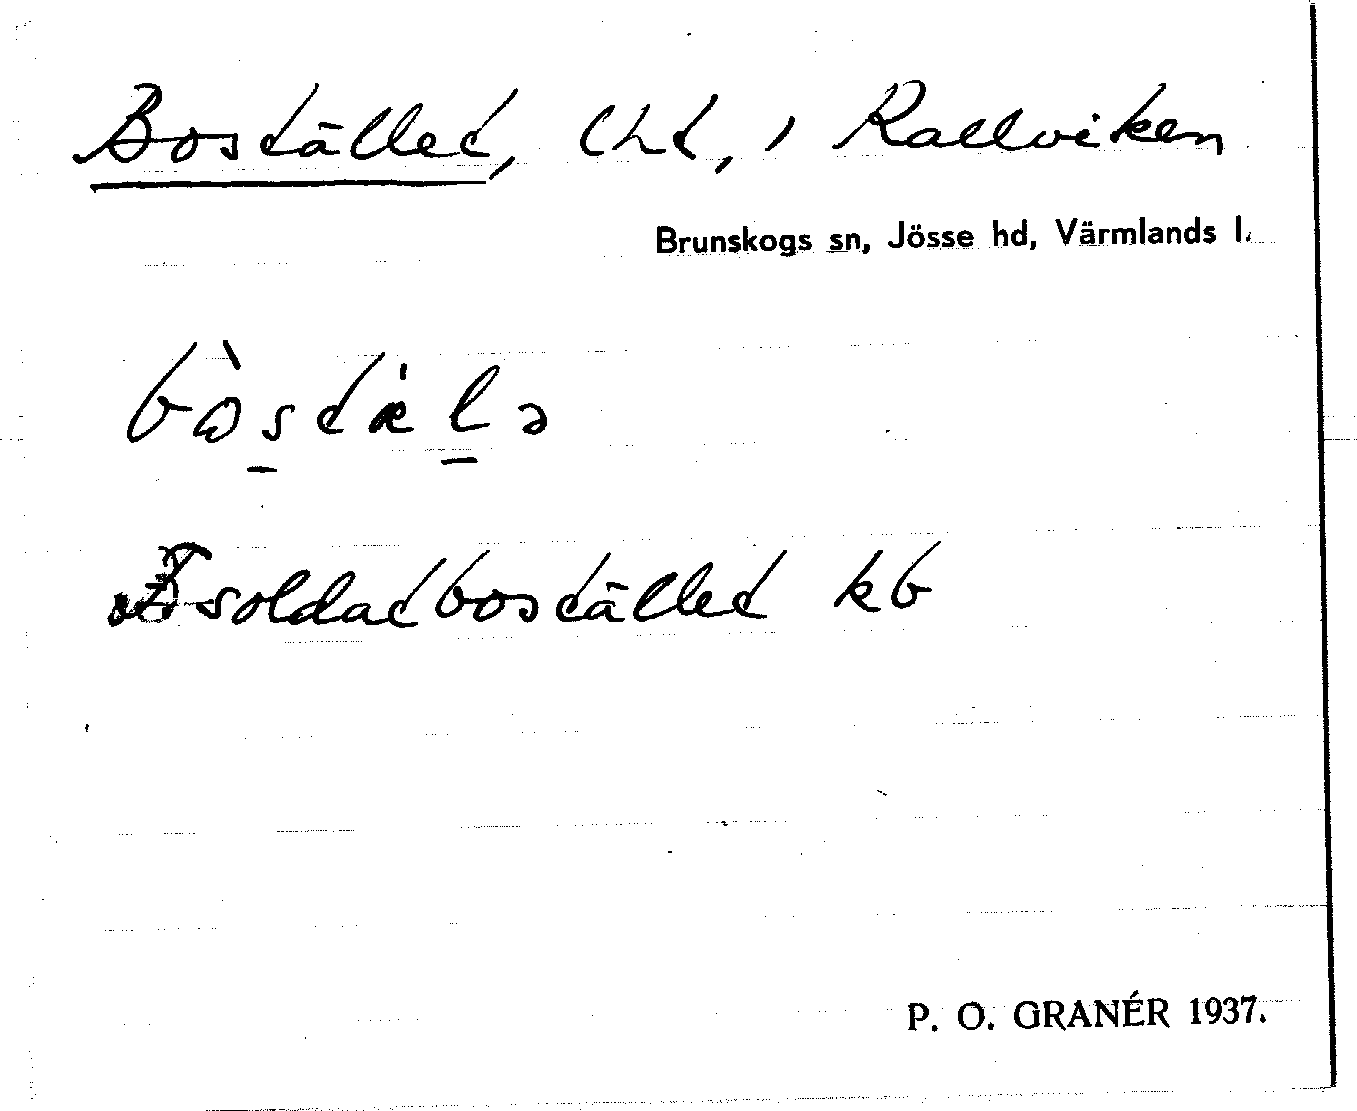 Boställed, lht, i Rallviken
Brunskogs sn, Jösse hd, Värmlands l.
soldatboställed kb
P. O. GRANÉR 1937.